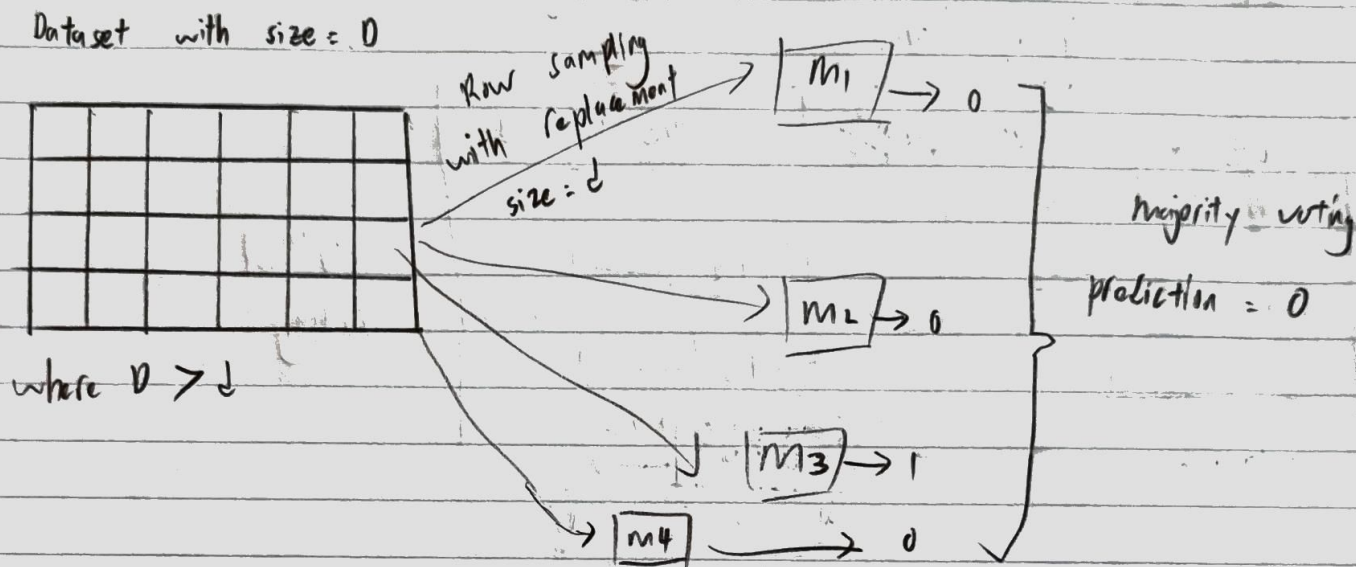 Dataset with size = D
Row sampling
with replacement
size = d
m1 → 0
m2 → 0
m3 → 1
m4 → 0
majority voting
prediction = 0
where D > d